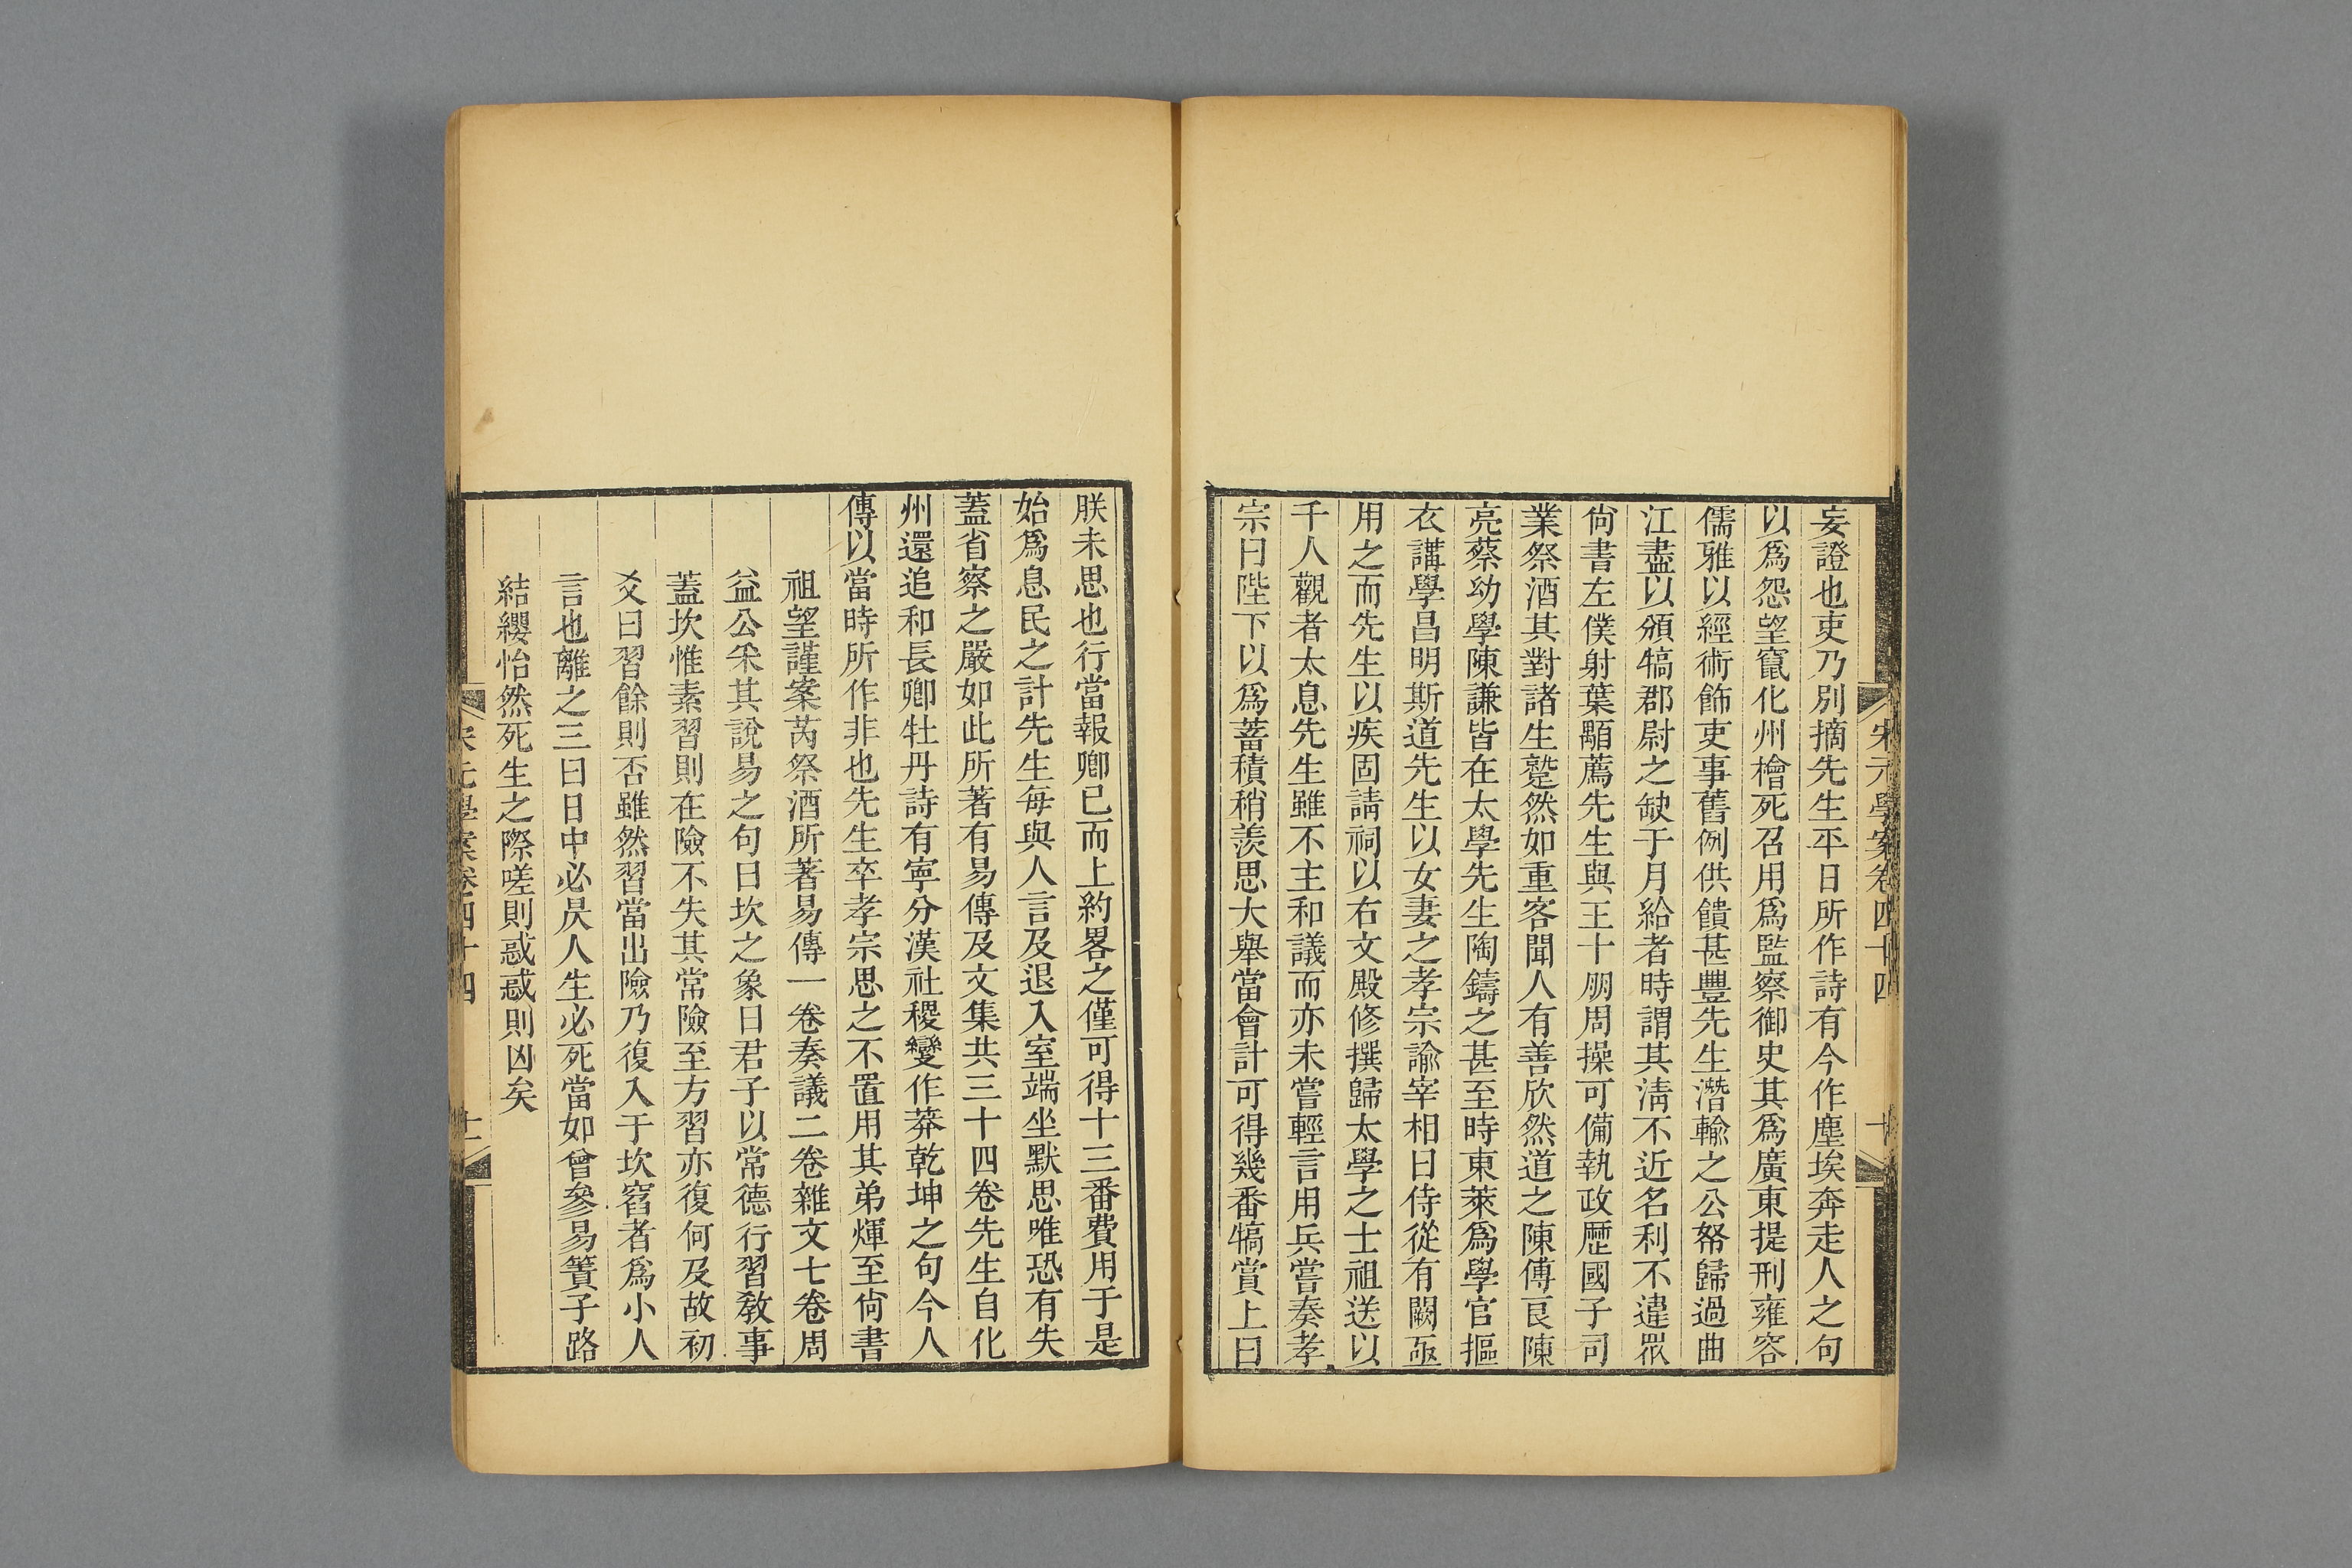 宋元學案卷四十四
十
妄證也吏乃別摘先生平日所作詩有今作塵埃奔走人之句
以爲怨望竄化州檜死召用爲監察御史其爲廣東提刑雍容
儒雅以經術飾吏事舊例供饋甚豐先生潛輸之公帑歸過曲
江盡以頒犒郡尉之缺于月給者時謂其淸不近名利不違眾
尙書左僕射葉顒薦先生與王十朋周操可備執政歷國子司
業祭酒其對諸生蹵然如重客聞人有善欣然道之陳傅良陳
亮蔡幼學陳謙皆在太學先生陶鑄之甚至時東萊爲學官摳
衣講學昌明斯道先生以女妻之孝宗諭宰相曰侍從有闕亟
用之而先生以疾固請祠以右文殿修撰歸太學之士祖送以
千人觀者太息先生雖不主和議而亦未嘗輕言用兵嘗奏孝
宗曰陛下以爲蓄積稍羨思大舉當會計可得幾番犒賞上曰
朕未思也行當報卿已而上約畧之僅可得十三番費用于是
始爲息民之計先生每與人言及退入室端坐默思唯恐有失
蓋省察之嚴如此所著有易傳及文集共三十四卷先生自化
州還追和長卿牡丹詩有寧分漢社稷變作莽乾坤之句今人
傳以當時所作非也先生卒孝宗思之不置用其弟煇至尙書
祖望謹案芮祭酒所著易傳一卷奏議二卷雜文七卷周
益公釆其說易之句曰坎之象曰君子以常德行習敎事
蓋坎惟素習則在險不失其常險至方習亦復何及故初
爻曰習餘則否雖然習當出險乃復入于坎窞者爲小人
言也離之三曰日中必昃人生必死當如曾參易簀子路
結纓怡然死生之際嗟則惑惑則凶矣
宋元學案卷四十四
十一